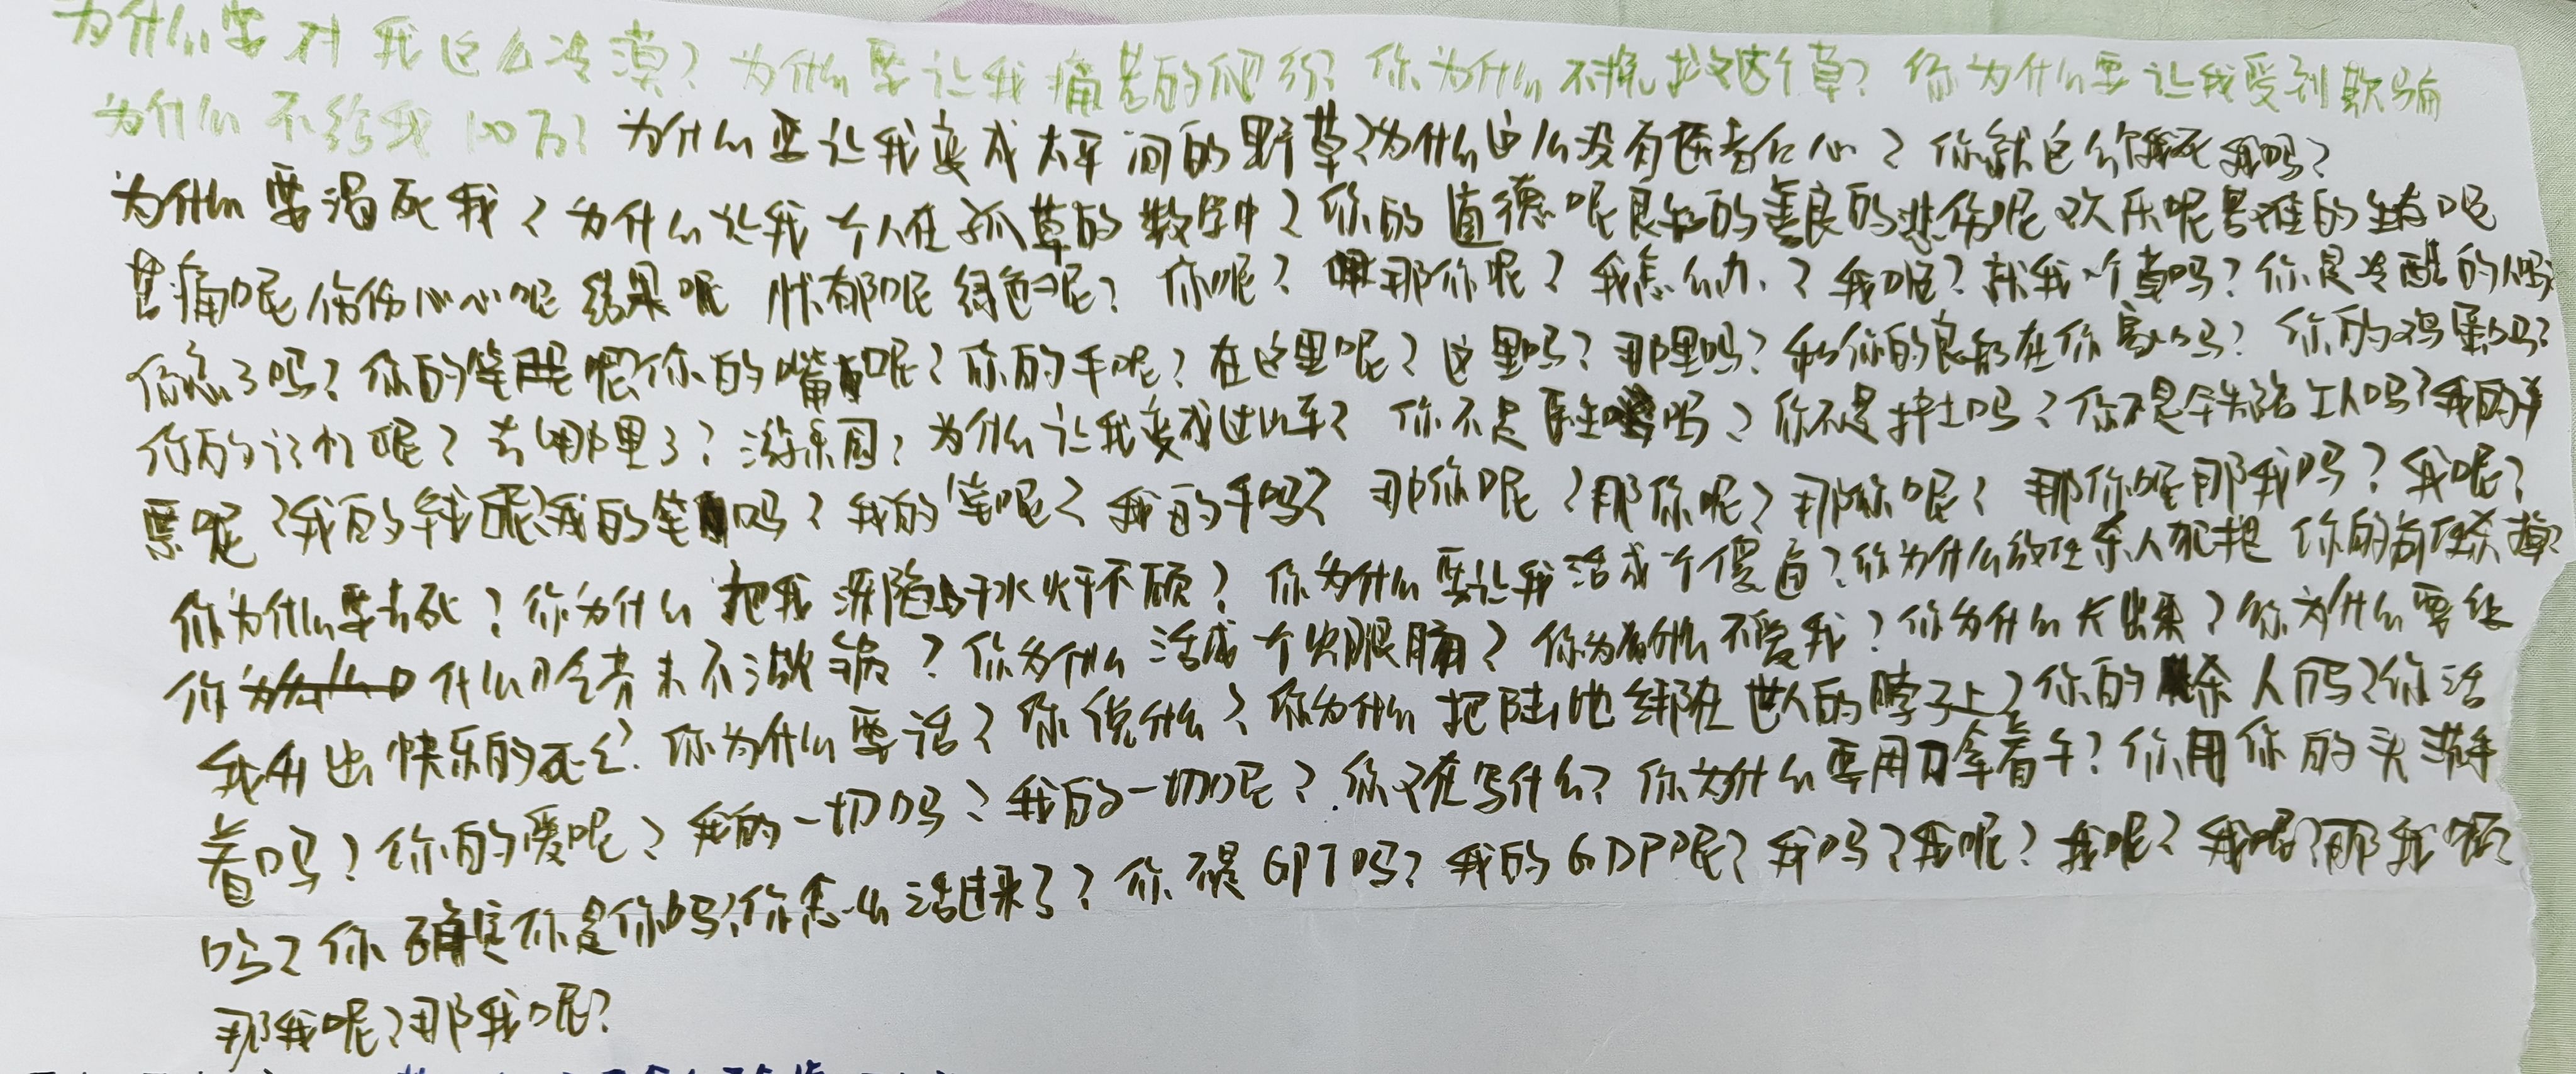 为什么要对我这么冷漠？为什么要让我痛苦的爬行？你为什么不挽救这个草？你为什么要让我受到欺骗
为什么不给我100万？为什么要让我变成太平间的野草？为什么这么没有医者仁心？你就这么饿死我吗？
为什么要渴死我？为什么让我一个人在孤草的数学中？你的道德呢良知的善良的悲伤呢欢乐呢
苦痛呢伤伤心心呢结果呢忧郁呢绿色呢？你呢？那你呢？我怎么办？我呢？就我一个草吗？你是冷酷的人吗？
你忘了吗？你的笔呢你的嘴呢？你的手呢？在这里呢？这里吗？那里吗？你的良知在你家吗？你的鸡蛋吗？
你的记忆呢？去哪里了？游乐园？为什么让我变成过山车？你不是医生吗？你不是护士吗？你不是铁路工人吗？我的
票呢？我的钱呢？我的笔吗？我的笔呢？我的手吗？那你呢？那你呢？那你呢？那你呢那我吗？我呢？
你为什么要去死？你为什么把我深陷于水火于不顾？你为什么要让我活成一个傻逼？你为什么放任杀人犯把你的前任杀掉？
你什么时候考来不激？你为什么活成一个？你为什么不爱我？你为什么不出来？你为什么要给
我开出快乐的死亡？你为什么要活？你说什么？你为什么把陆地绑在世人的脖子上？你的杀人吗？你活
着吗？你的爱呢？我的一切吗？我的一切呢？你又在写什么？你为什么要用刀拿着手？你用你的头
吗？你确定你是你吗？你怎么活过来了？你不是GPT吗？我的GDP呢？我吗？我呢？我呢？我呢？那我呢？
那我呢？那我呢？